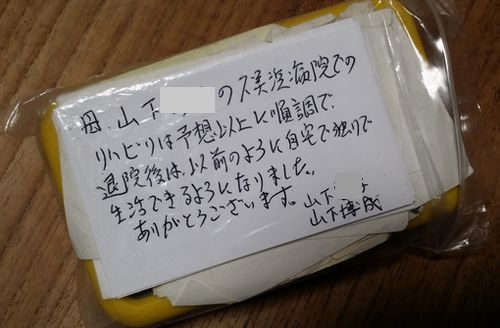 母、山下 の久美浜病院での
リハビリは予想以上に順調で、
退院後は、以前のように自宅で独りで
生活できるようになりました。
ありがとうございます。
山下
山下博成